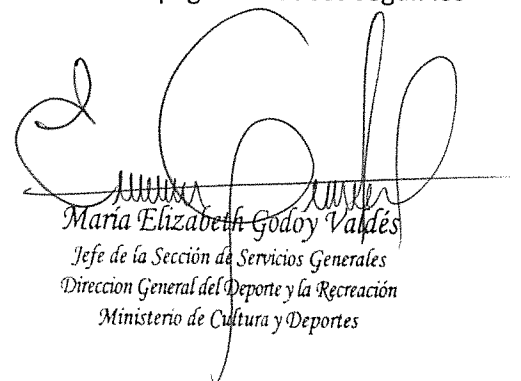 María Elizabeth Godoy Valdés
Jefe de la Sección de Servicios Generales
Direccion General del Deporte y la Recreación
Ministerio de Cultura y Deportes